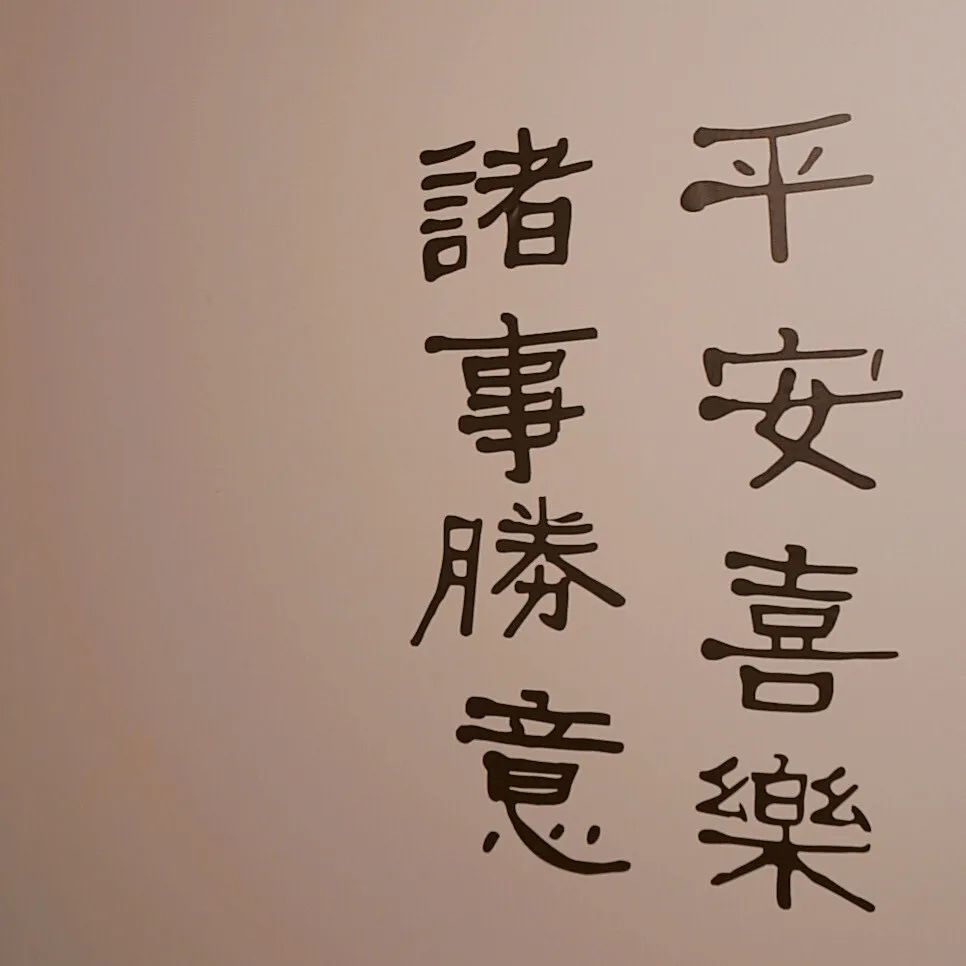 平安喜樂
諸事勝意